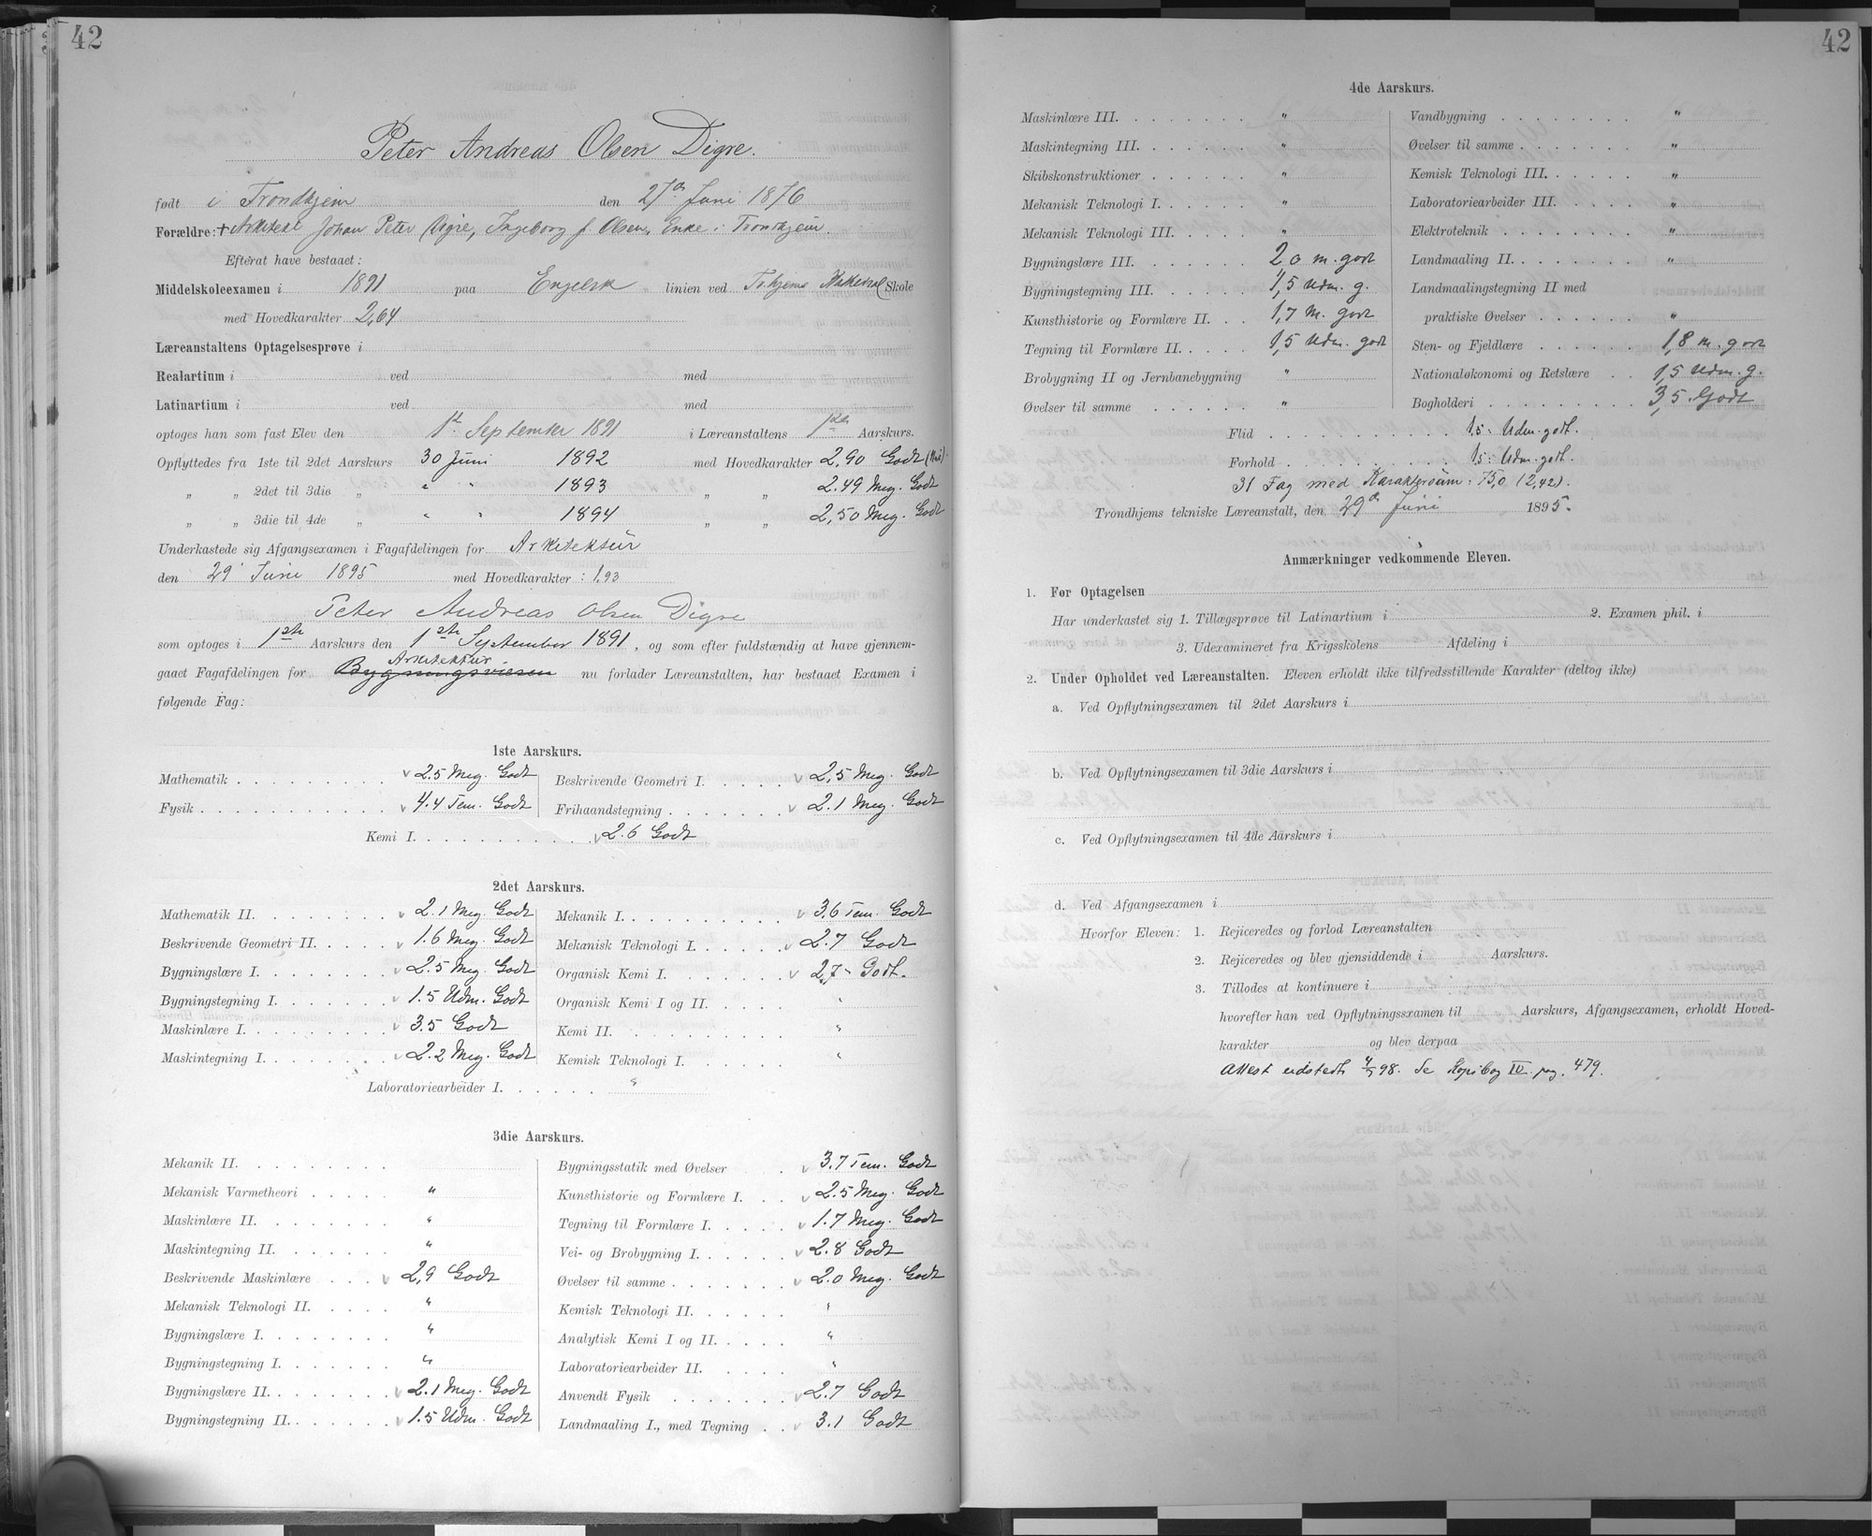 42
Peter Andreas Olsen Digre.
født i Trondhjem den 27de Juni 1876
Forældre: + Arkitekt Johan Peter Digre, Ingeborg f. Olsen, Enke i Trondhjem.
Efterat have bestaaet:
Middelskoleexamen i 1891 paa Engelsk linien ved Tr.hjems Skole
med Hovedkarakter 2,64
Læreanstaltens Optagelsesprøve i
Realartium i ved med
Latinartium i ved med
optoges han som fast Elev den 1st September 1891 i Læreanstaltens 1ste Aarskurs.
Opflyttedes fra 1ste til 2det Aarskurs 30 Juni 1892 med Hovedkarakter 2,90 Godt
„ „ 2det til 3die „ " " 1893 „ „ 2.49 Meg. Godt
„ „ 3die til 4de „ " " 1894 „ „ 2,50 Meg. Godt
Underkastede sig Afgangsexamen i Fagafdelingen for Arkitektur
den 29 Juni 1895 med Hovedkarakter : 1,93
Peter Andreas Olsen Digre
som optoges i 1ste Aarskurs den 1ste September 1891, og som efter fuldstændig at have gjennem-
Arkitektur
gaaet Fagafdelingen for Bygningsvæsen nu forlader Læreanstalten, har bestaaet Examen i
følgende Fag:
1ste Aarskurs.
Mathematik 2.5 Meg. Godt Beskrivende Geometri I. 2,5 Meg. Godt
Fysik 4.4 Tem. Godt Frihaandstegning 2.1 Meg. Godt
Kemi I. 2.6 Godt
2det Aarskurs.
Mathematik II. 2.1 Meg. Godt Mekanik I. 3.6 Tem. Godt
Beskrivende Geometri II. 1.6 Meg. Godt Mekanisk Teknologi I. 2.7 Godt
Bygningslære I. 2.5 Meg. Godt Organisk Kemi I. 2,7 - Godt.
Bygningstegning I. 1.5 Udm. Godt Organisk Kemi I og II. "
Maskinlære I. 3.5 Godt Kemi II. "
Maskintegning I. 2.2 Meg. Godt Kemisk Teknologi I. "
Laboratoriearbeider I. "
3die Aarskurs.
Mekanik II. Bygningsstatik med Øvelser 3.7 Tem. Godt
Mekanisk Varmetheori " Kunsthistorie og Formlære I. 2.5 Meg. Godt
Maskinlære II. " Tegning til Formlære I. 1.7 Meg. Godt
Maskintegning II. " Vei- og Brobygning I. 2.8 Godt
Beskrivende Maskinlære 2,9 Godt Øvelser til samme 2.0 Meg. Godt
Mekanisk Teknologi II. " Kemisk Teknologi II. "
Bygningslære I. " Analytisk Kemi I og II. "
Bygningstegning I. " Laboratoriearbeider II. "
Bygningslære II. 2.1 Meg. Godt Anvendt Fysik 2.7 Godt
Bygningstegning II. 1.5 Udm. Godt Landmaaling I., med Tegning 3.1 Godt
42
4de Aarskurs.
Maskinlære III. " Vandbygning "
Maskintegning III. " Øvelser til samme "
Skibskonstruktioner " Kemisk Teknologi III. "
Mekanisk Teknologi I. " Laboratoriearbeider III. "
Mekanisk Teknologi III. " Elektroteknik "
Bygningslære III. 2,0 m. godt Landmaaling II. "
Bygningstegning III. 1,5 Udm. g. Landmaalingstegning II med
Kunsthistorie og Formlære II. 1,7 M. godt praktiske Øvelser "
Tegning til Formlære II. 1,5 Udm. godt Sten- og Fjeldlære 1,8 m. godt
Brobygning II og Jernbanebygning " Nationaløkonomi og Retslære 1,5 Udm. g.
Øvelser til samme " Bogholderi 3,5 Godt
Flid 1.5 - Udm. godt.
Forhold 1.5 - Udm. godt.
31 Fag med Karaktersum : 75,0 (2,42).
Trondhjems tekniske Læreanstalt, den 29de Juni 1895.
Anmærkninger vedkommende Eleven.
1. Før Optagelsen
Har underkastet sig 1. Tillægsprøve til Latinartium i 2. Examen phil. i
3. Udexamineret fra Krigsskolens Afdeling i
2. Under Opholdet ved Læreanstalten. Eleven erholdt ikke tilfredsstillende Karakter (deltog ikke)
a. Ved Opflytningsexamen til 2det Aarskurs i
b. Ved Opflytningsexamen til 3die Aarskurs i
c. Ved Opflytningsexamen til 4de Aarskurs i
d. Ved Afgangsexamen i
Hvorfor Eleven: 1. Rejiceredes og forlod Læreanstalten
2. Rejiceredes og blev gjensiddende i Aarskurs.
3. Tillodes at kontinuere i
hvorefter han ved Opflytningssxamen til Aarskurs, Afgangsexamen, erholdt Hoved-
karakter og blev derpaa
Attest udstedt 4/5 98. Se Kopibog IV. pag. 479.